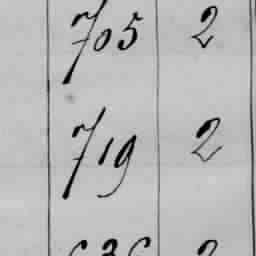 705 2
719 2